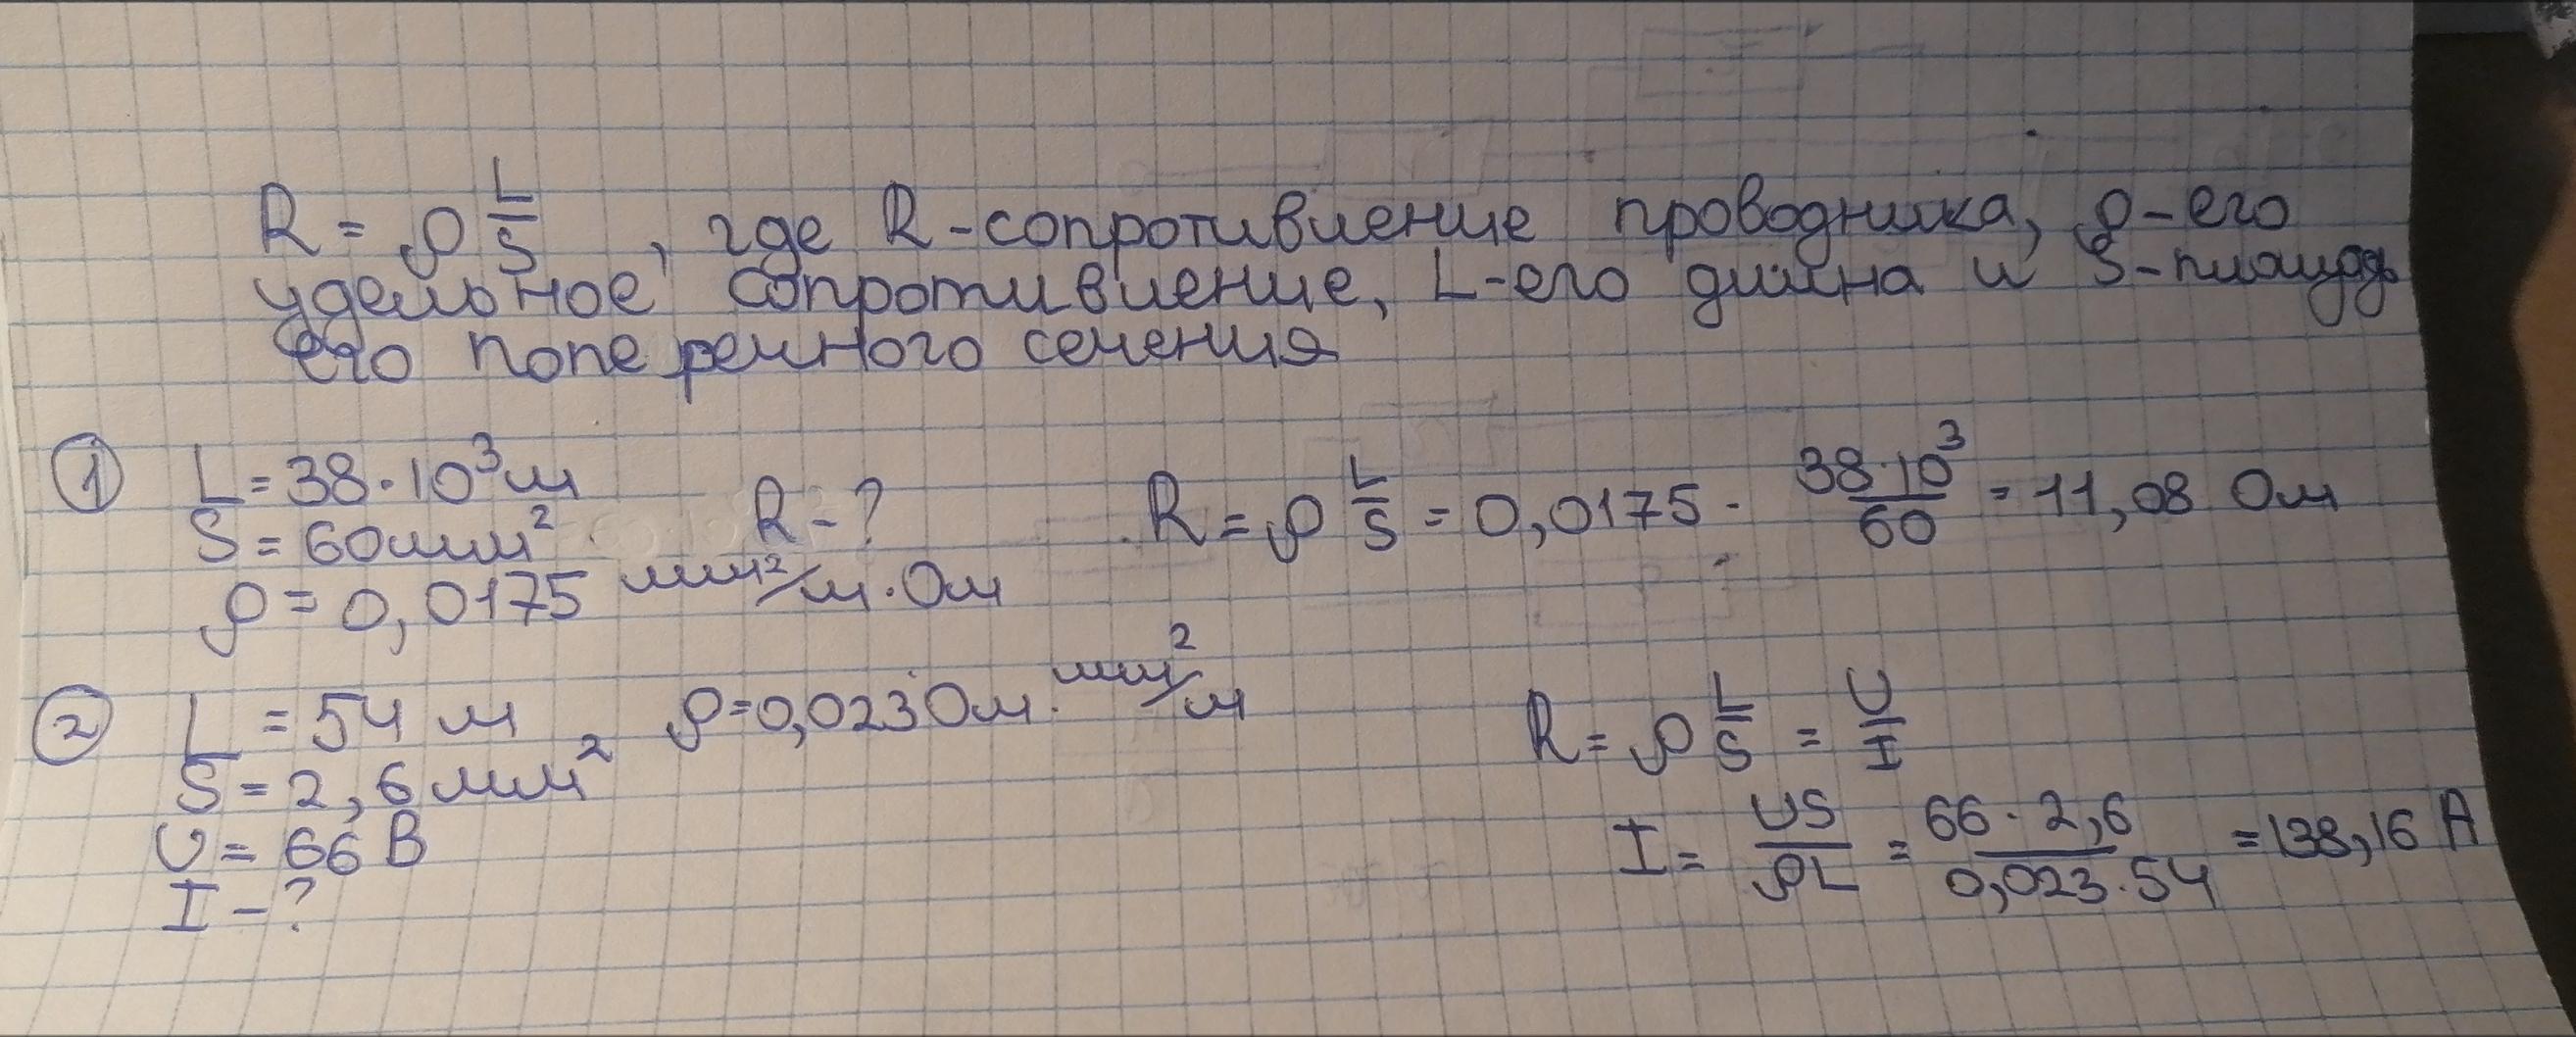 R = ρ L/S , где R-сопротивление проводника, ρ-его
удельное сопротивление, L-его длина и S-площадь
его поперечного сечения
① L = 38·10³ м
S = 60 мм²
R - ?
ρ = 0,0175 мм²/м · Ом
R = ρ L/S = 0,0175 · 38·10³/60 = 11,08 Ом
② L = 54 м ρ=0,023 Ом · мм²/м
S = 2,6 мм²
U = 66 В
I - ?
R = ρ L/S = U/I
I = US/ρL = 66 · 2,6/0,023·54 = 138,16 А